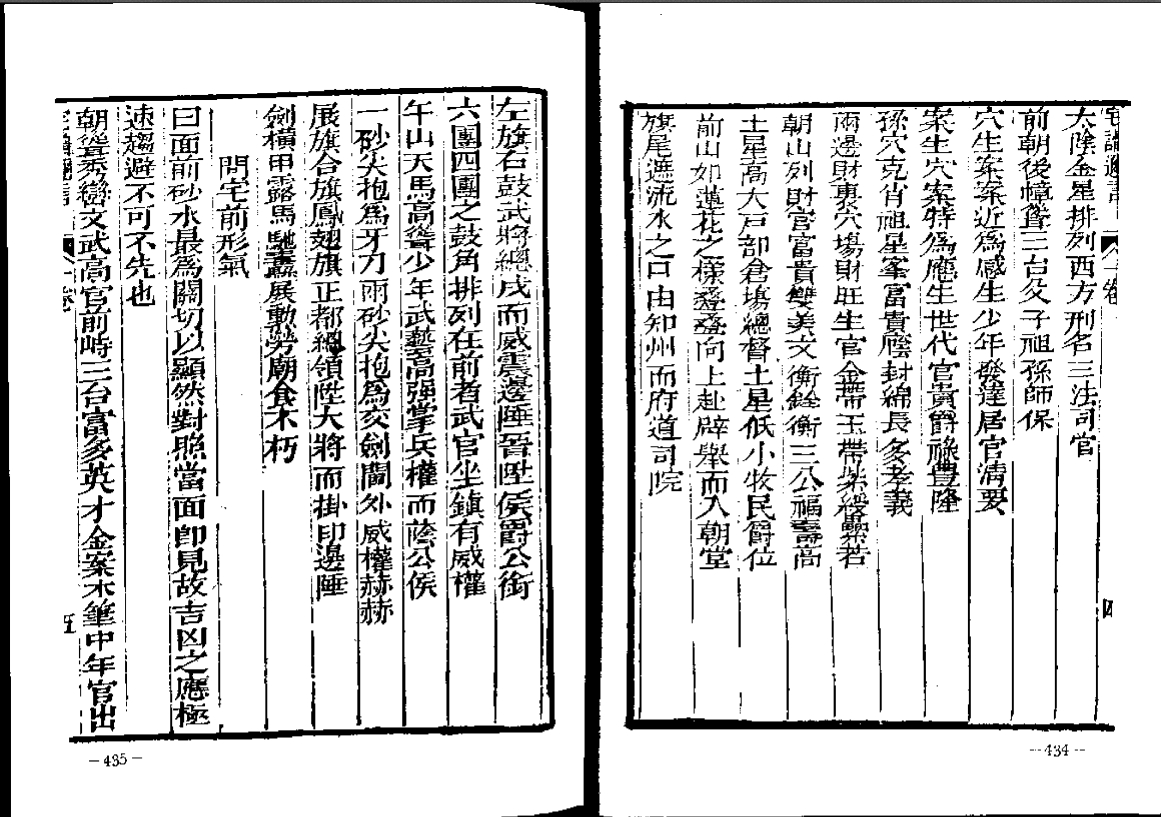 太陰金星排列西方刑名三法司官
前朝後幛聳三台父子祖孫師保
穴生案案近為感生少年發達居官清要
案生穴案特為應生世代官貴爵祿豊隆
孫穴克肖祖星峯富貴廕封綿長多孝義
兩邊財裹穴塲財旺生官金帶玉帶紫綬纍若
朝山列財官富貴雙美文衡銓衡三公福壽高
土星高大戸部倉塲總督土星低小牧民爵位
前山如蓮花之樣叠叠向上赴辟舉而入朝堂
旗尾遮流水之口由知州而府道司院
四
—434—
左旗右鼓武將總戍而威震邊陲晉陞侯爵公銜
六團四團之鼓角排列在前者武官坐鎮有威權
午山天馬高聳少年武藝高强掌兵權而蔭公侯
一砂尖抱為牙刀兩砂尖抱為交劍閫外威權赫赫
展旗合旗鳳翅旗正都總領陞大將而掛印邊陲
劍橫甲露馬馳纛展勳勞廟食不朽
問宅前形氣
曰面前砂水最為關切以顯然對照當面卽見故吉凶之應極
速趨避不可不先也
朝聳秀巒文武高官前峙三台富多英才金案木筆中年官出
五
—435—